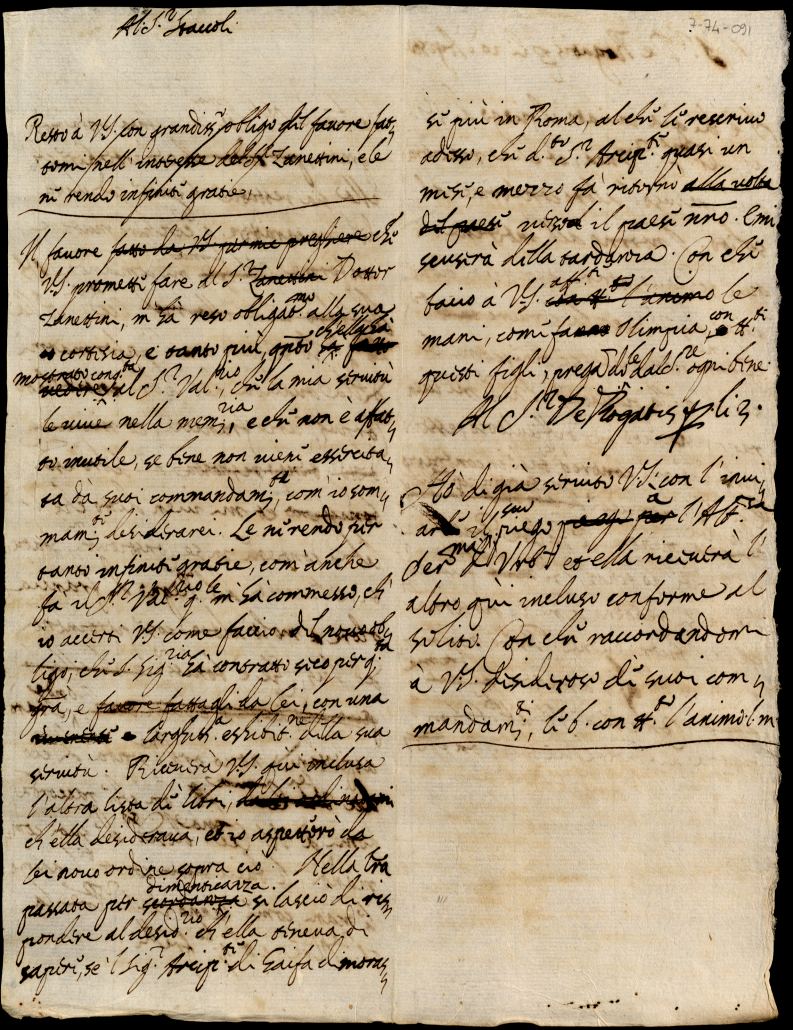 Al S.r Staccoli
7-74-091
Resto à V.S. con grandiss.o obligo del favore fat,
tomi nell'interesse del S.r Zanettini, e le
ne rendo infinite gratie.
Il favore fatto da V.S. per mie preghiere che
V.S. promette fare al S.r Zanettini Dottor
Zanettini, m'hà reso obligat.mo alla sua
cortesia, e tanto più, q.nto ch'ella hà
mostrato con q.ta al S.r Val.rio, che la mia servitù
le vive nella mem.ria, e che non è affat,
to inutile, se bene non viene essercita,
ta dà suoi commandam.ti, com'io som,
mam.te desiderarei. Le ne rendo per
tanto infinite gratie, com'anche
fa il S.r Val.rio q.le m'hà commesso, ch'
io accerti V.S. come faccio, del nouo ob,
ligo, che S. Sig.ria hà contratto seco per q.ta
gra, e favore fattagli da lei, con una
e larghiss.a eshibit.ne della sua
servitù. Riceverà V.S. quì inclusa
l'altra lista de libri,
ch'ella desiderava, et io aspettorò da
lei novo ordine sopra ciò. Nella
passata per scordanza dimenticanza si lasciò di ris,
pondere al desid.rio ch'ella teneva di
sapere, se'l Sig.r Arcip.te di Gaifa dimoras,
se più in Roma, al che le rescrivo
adesso, che d.to S.r Arcip.te quasi un
mese, e mezzo fà ritornò alla volta
del paese verso il paese nro. E mi
scuserà della tardanza. Con che
bacio à V.S. aff.te l'animo le
mani, come fa Olimpia, con tt.ti
questi figli, pregãdole dal S.re ogni bene.
Al S.r De Rogatis
Hò di già scritto V.S. con l'invi,
ar il suo piego per l'Abb.
mader d'Urb.o et ella riceverà l'
altro quì incluso conforme al
solito. Con che raccordandomi
à V.S. desideroso de suoi com,
mandam.ti, le b. con tt.to l'animo l. m.